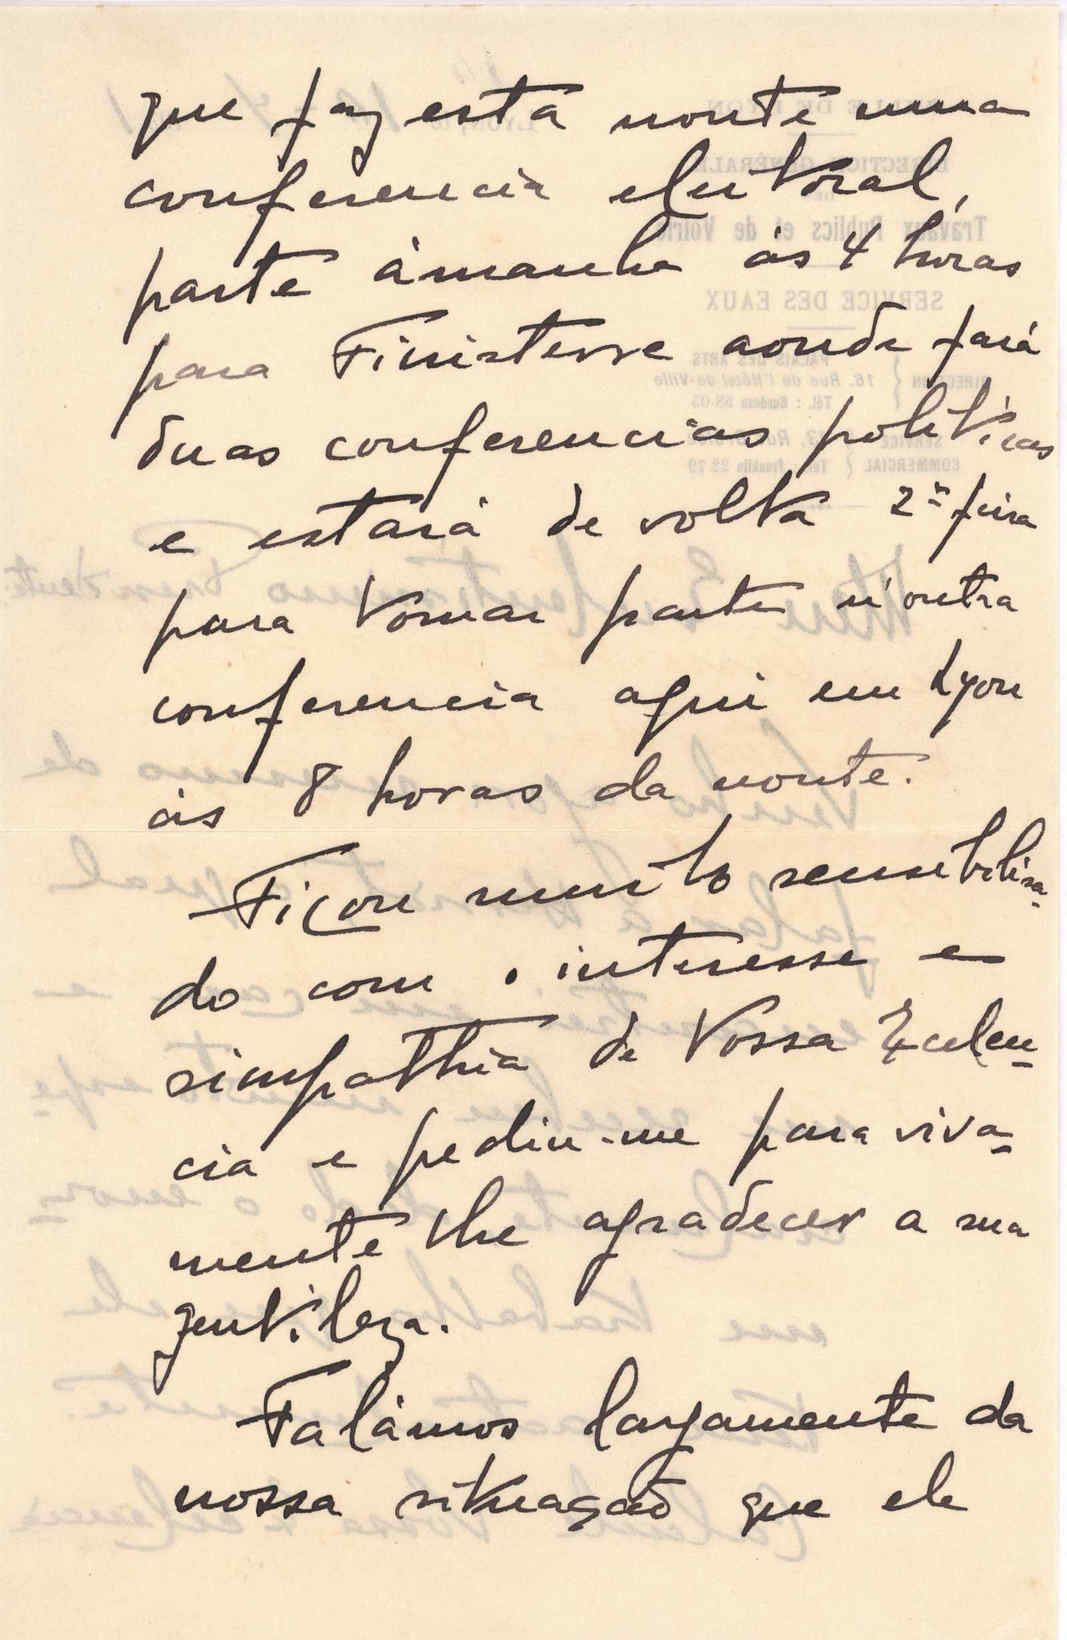 que faz esta noute uma
conferencia eleitoral,
parte ámanha ás 4 horas
para Finisterre aonde fará
duas conferencias politicas
e estará de volta 2ª feira
para tomar parte n'outra
conferencia aqui em Lyon
ás 8 horas da noute.
Ficou muito sensibilisa-
do com o interesse e
simpathia de Vossa Exelen-
cia e pediu-me para viva-
mente lhe agradecer a sua
gentileza.
Falámos largamente da
nossa situação que ele